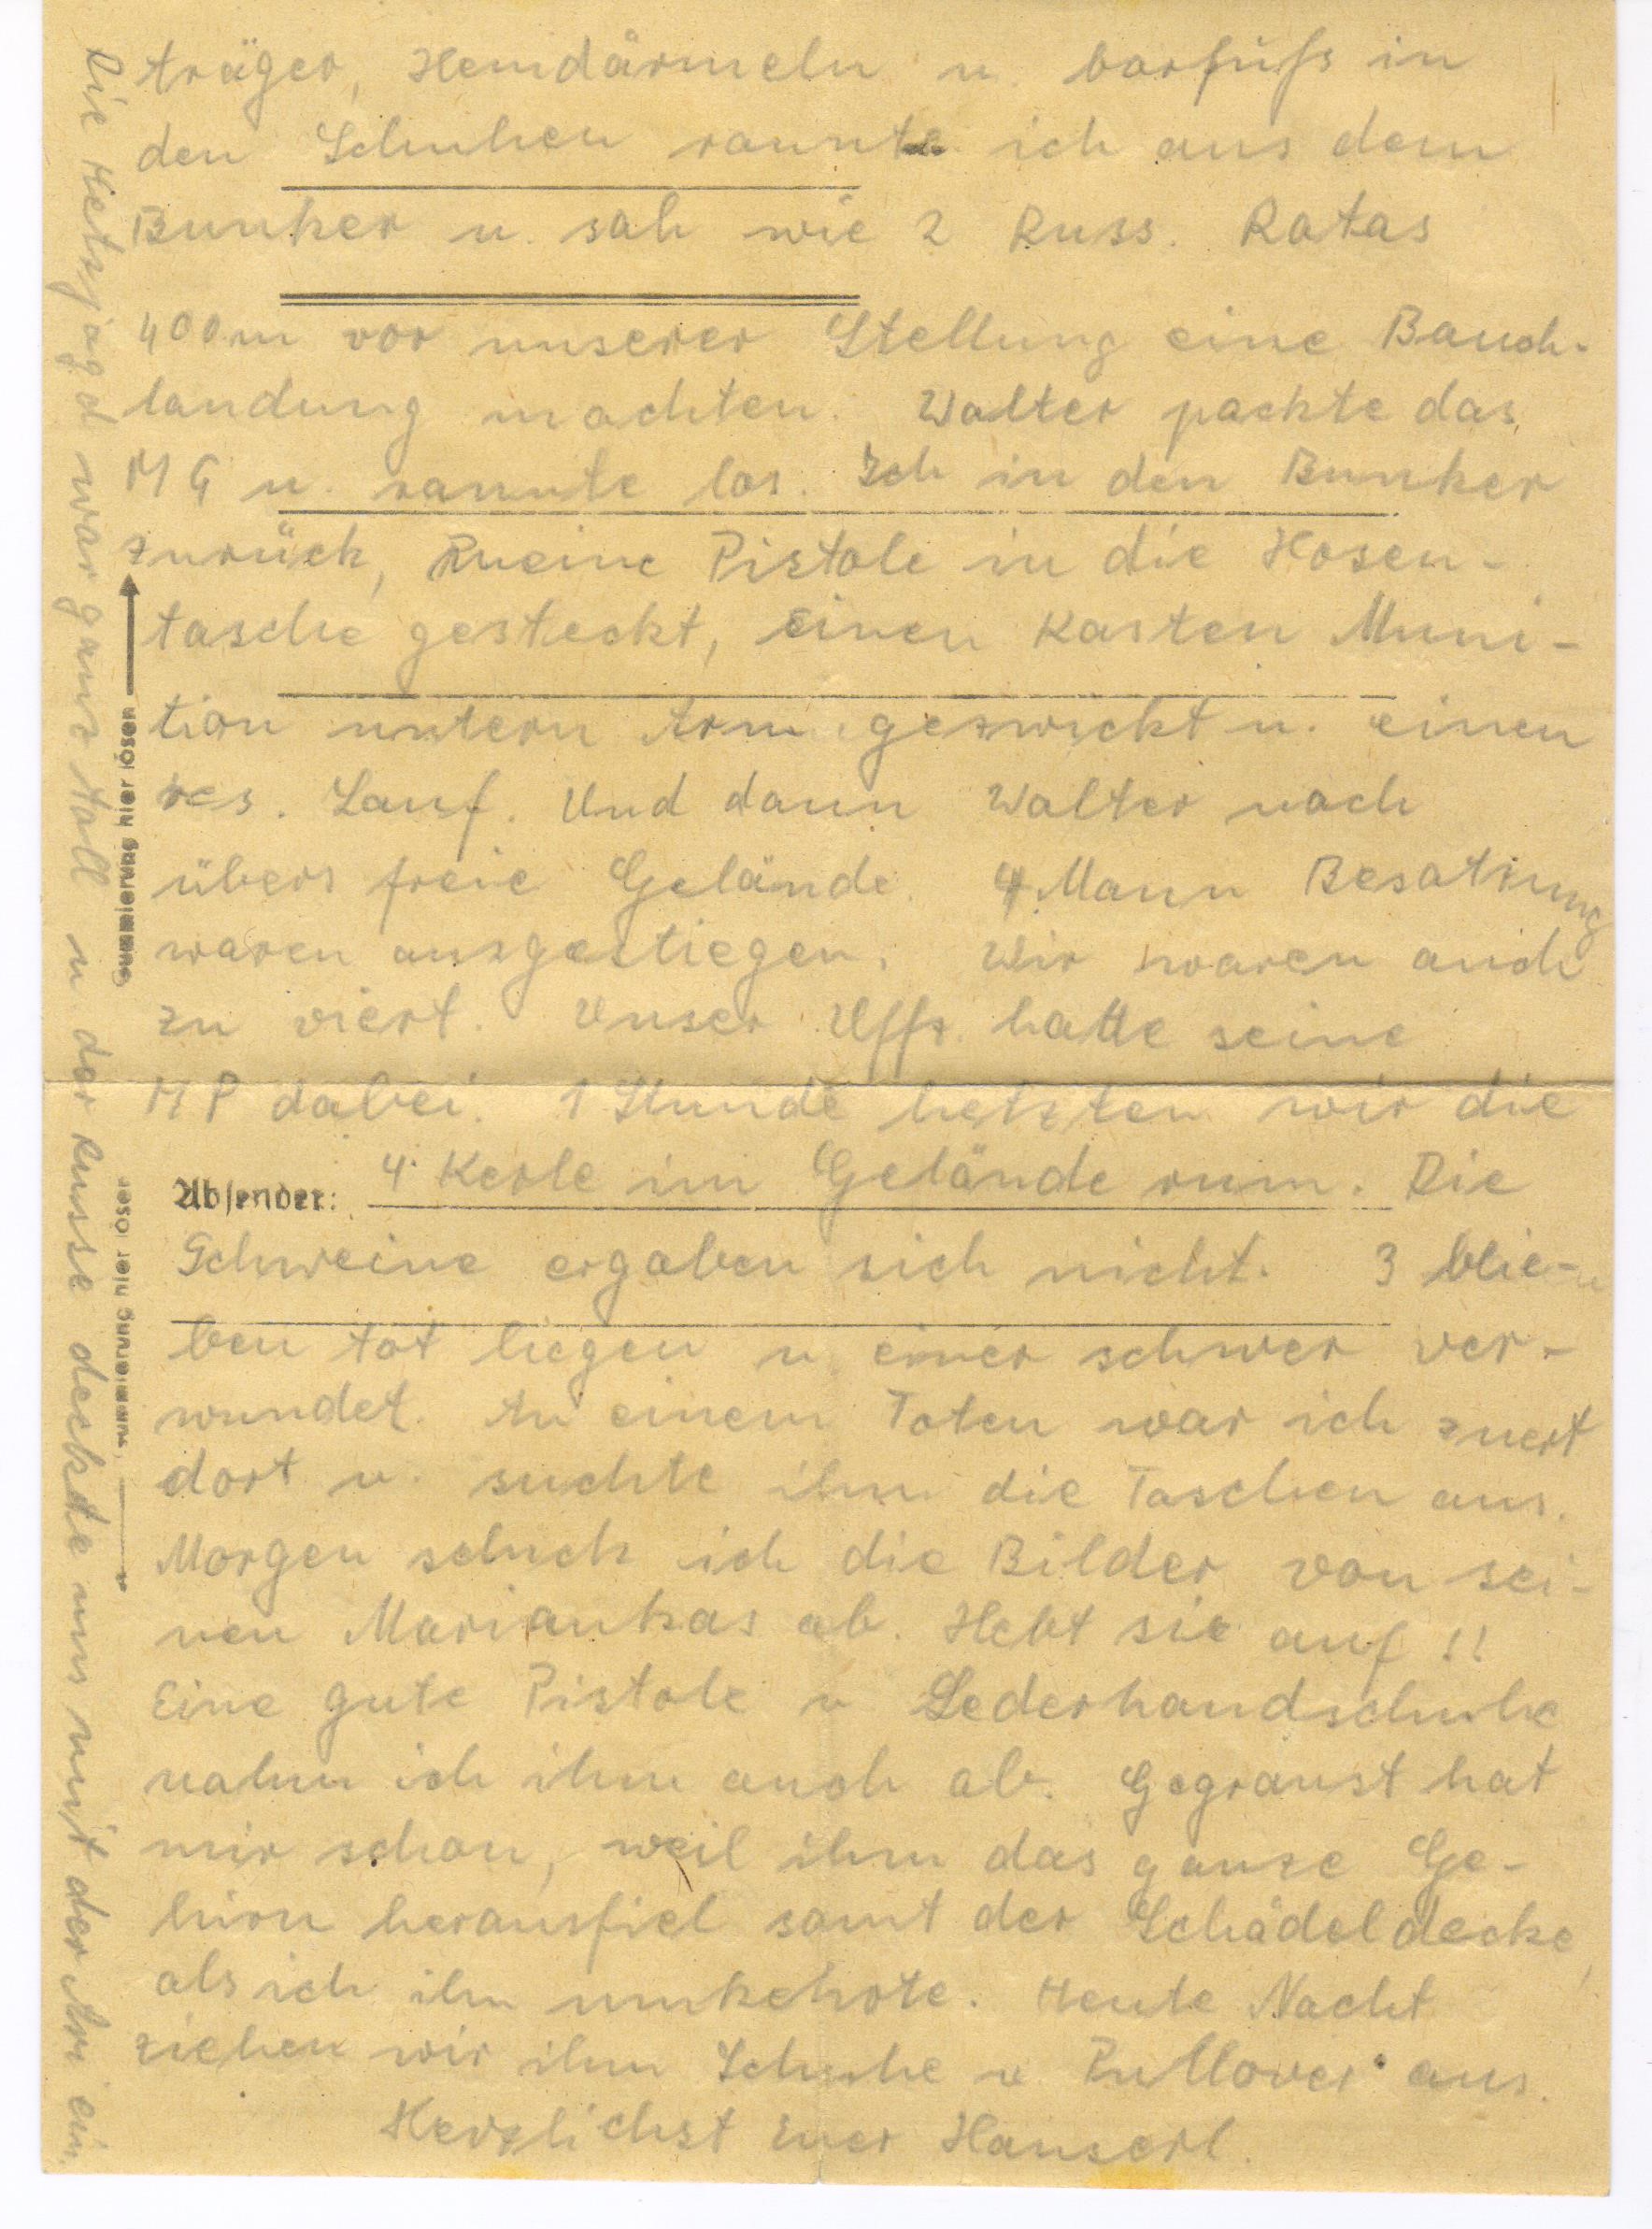 träger, Hemdärmeln u. barfuß in
den Schuhen rannte ich aus dem
Bunker u. sah wie 2 Russ. Ratas
400 m vor unserer Stellung eine Bauch-
landung machten. Walter packte das
MG u. rannte los. Ich in den Bunker
zurück, meine Pistole in die Hosen-
tasche gesteckt, einen Kasten Muni-
tion untern Arm gezwickt u. einen
res. Lauf. Und dann Walter nach
übers freie Gelände. 4 Mann Besatzung
waren ausgestiegen. Wir waren auch
zu viert. Unser Uffz. hatte seine
MP dabei. 1 Stunde hetzten wir die
Absender: 4 Kerle im Gelände rum. Die
Schweine ergaben sich nicht. 3 blie-
ben tot liegen u. einer schwer ver-
wundet. An einem Toten war ich zuert
dort u. suchte ihm die Taschen aus.
Morgen schick ich die Bilder von sei-
nen Mariankas ab. Hebt sie auf !!
Eine gute Pistole u Lederhandschuhe
nahm ich ihm auch ab. Gegraust hat
mir schon, weil ihm das ganze Ge-
hirn herausfiel samt der Schädeldecke,
als ich ihn umkehrte. Heute Nacht
ziehen wir ihm Schuhe u Pullover aus.
Herzlichst Euer Hanserl.
Die Hetzjagd war ganz toll u. der Russe deckte uns mit der Ari ein.
Gummierung hier lösen
Gummierung hier lösen